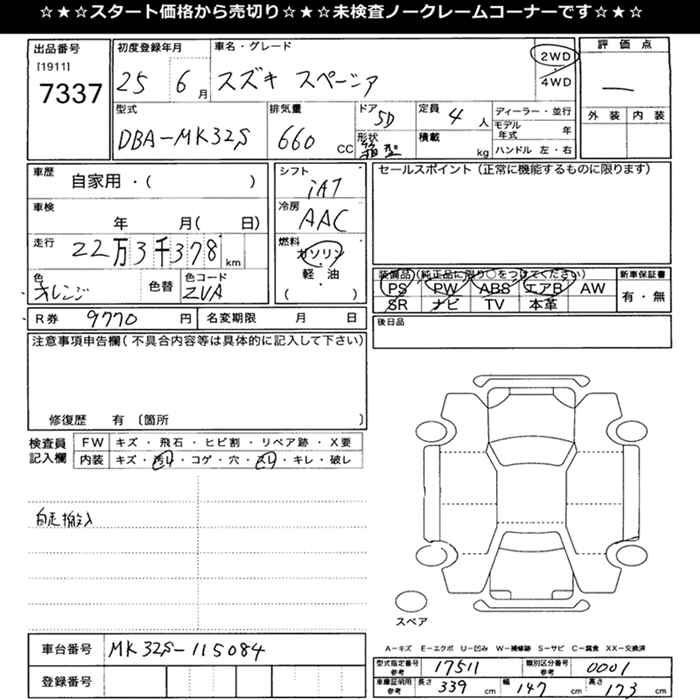 ☆★☆★スタート価格から売切り☆★☆★未検査ノークレームコーナーです☆★☆
出品番号
[1911]
7337
初度登録年月
25 6月
車名・グレード
スズキ スペーシア
2WD
4WD
評価点
―
外装 内装
型式
DBA-MK32S
排気量
660 CC
ドア
5D
形状
箱型
定員
4人
積載
kg
ディーラー・並行
モデル年式 年
ハンドル 左・右
車歴
自家用・( )
車検
年 月( 日)
走行
22万3千378km
色
オレンジ
色替
色コード
ZVA
シフト
iAT
冷房
AAC
燃料
ガソリン
・
軽油
・
( )
セールスポイント(正常に機能するものに限ります)
装備品(純正品に限り○をつけてください)
PS PW ABS エアB AW
SR ナビ TV 本革
新車保証書
有・無
R券 9770円
名変期限 月 日
後日品
注意事項申告欄(不具合内容等は具体的に記入して下さい)
修復歴 有〔箇所 〕
検査員記入欄
FW キズ・飛石・ヒビ割・リペア跡・X要
内装 キズ・汚れ・コゲ・穴・スレ・キレ・破レ
自走搬入
スペア
A-キズ E-エクボ U-凹み W-補修跡 S-サビ C-腐食 XX-交換済
車台番号 MK32S-115084
登録番号
型式指定番号 参考 17511
類別区分番号 参考 0001
車庫証明用 参考 長さ 339cm 幅 147cm 高さ 173cm